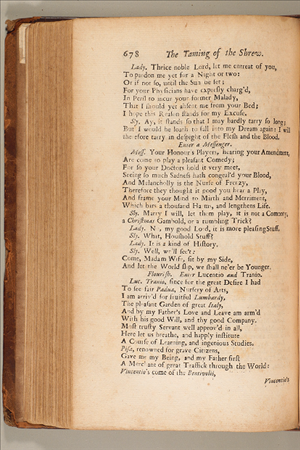 678 The Taming of the Shrew.
Lady. Thrice noble Lord, let me entreat of you,
To pardon me yet for a Night or two:
Or if not so, until the Sun be set:
For your Physicians have expresly charg'd,
In Peril to incur your former Malady,
That I should yet absent me from your Bed;
I hope this Reason stands for my Excuse.
Sly. Ay, it stands so that I may hardly tarry so long;
But I would be loath to fall into my Dream again: I will
therefore tarry in despight of the Flesh and the Blood.
Enter a Messenger.
Mess. Your Honour's Players, hearing your Amendment,
Are come to play a pleasant Comedy;
For so your Doctors hold it very meet,
Seeing so much Sadness hath congeal'd your Blood,
And Melancholly is the Nurse of Frenzy,
Therefore they thought it good you hear a Play,
And frame your Mind to Mirth and Merriment,
Which bars a thousand Harms, and lengthens Life.
Sly. Marry I will, let them play, it is not a Comonty,
a Christmas Gambold, or a tumbling Trick?
Lady. No, my good Lord, it is more pleasing Stuff.
Sly. What, Houshold Stuff?
Lady. It is a kind of History.
Sly. Well, we'll see't:
Come, Madam Wife, sit by my Side,
And let the World slip, we shall ne'er be Younger.
Flourish. Enter Lucentio and Tranio.
Luc. Tranio, since for the great Desire I had
To see fair Padua, Nursery of Arts,
I am arriv'd for fruitful Lombardy,
The pleasant Garden of great Italy,
And by my Father's Love and Leave am arm'd
With his good Will, and thy good Company.
Most trusty Servant well approv'd in all,
Here let us breathe, and happily institute
A Course of Learning, and ingenious Studies.
Pisa, renowned for grave Citizens,
Gave me my Being, and my Father first
A Merchant of great Traffick through the World:
Vincentio's come of the Bentivolii,
Vincentio's